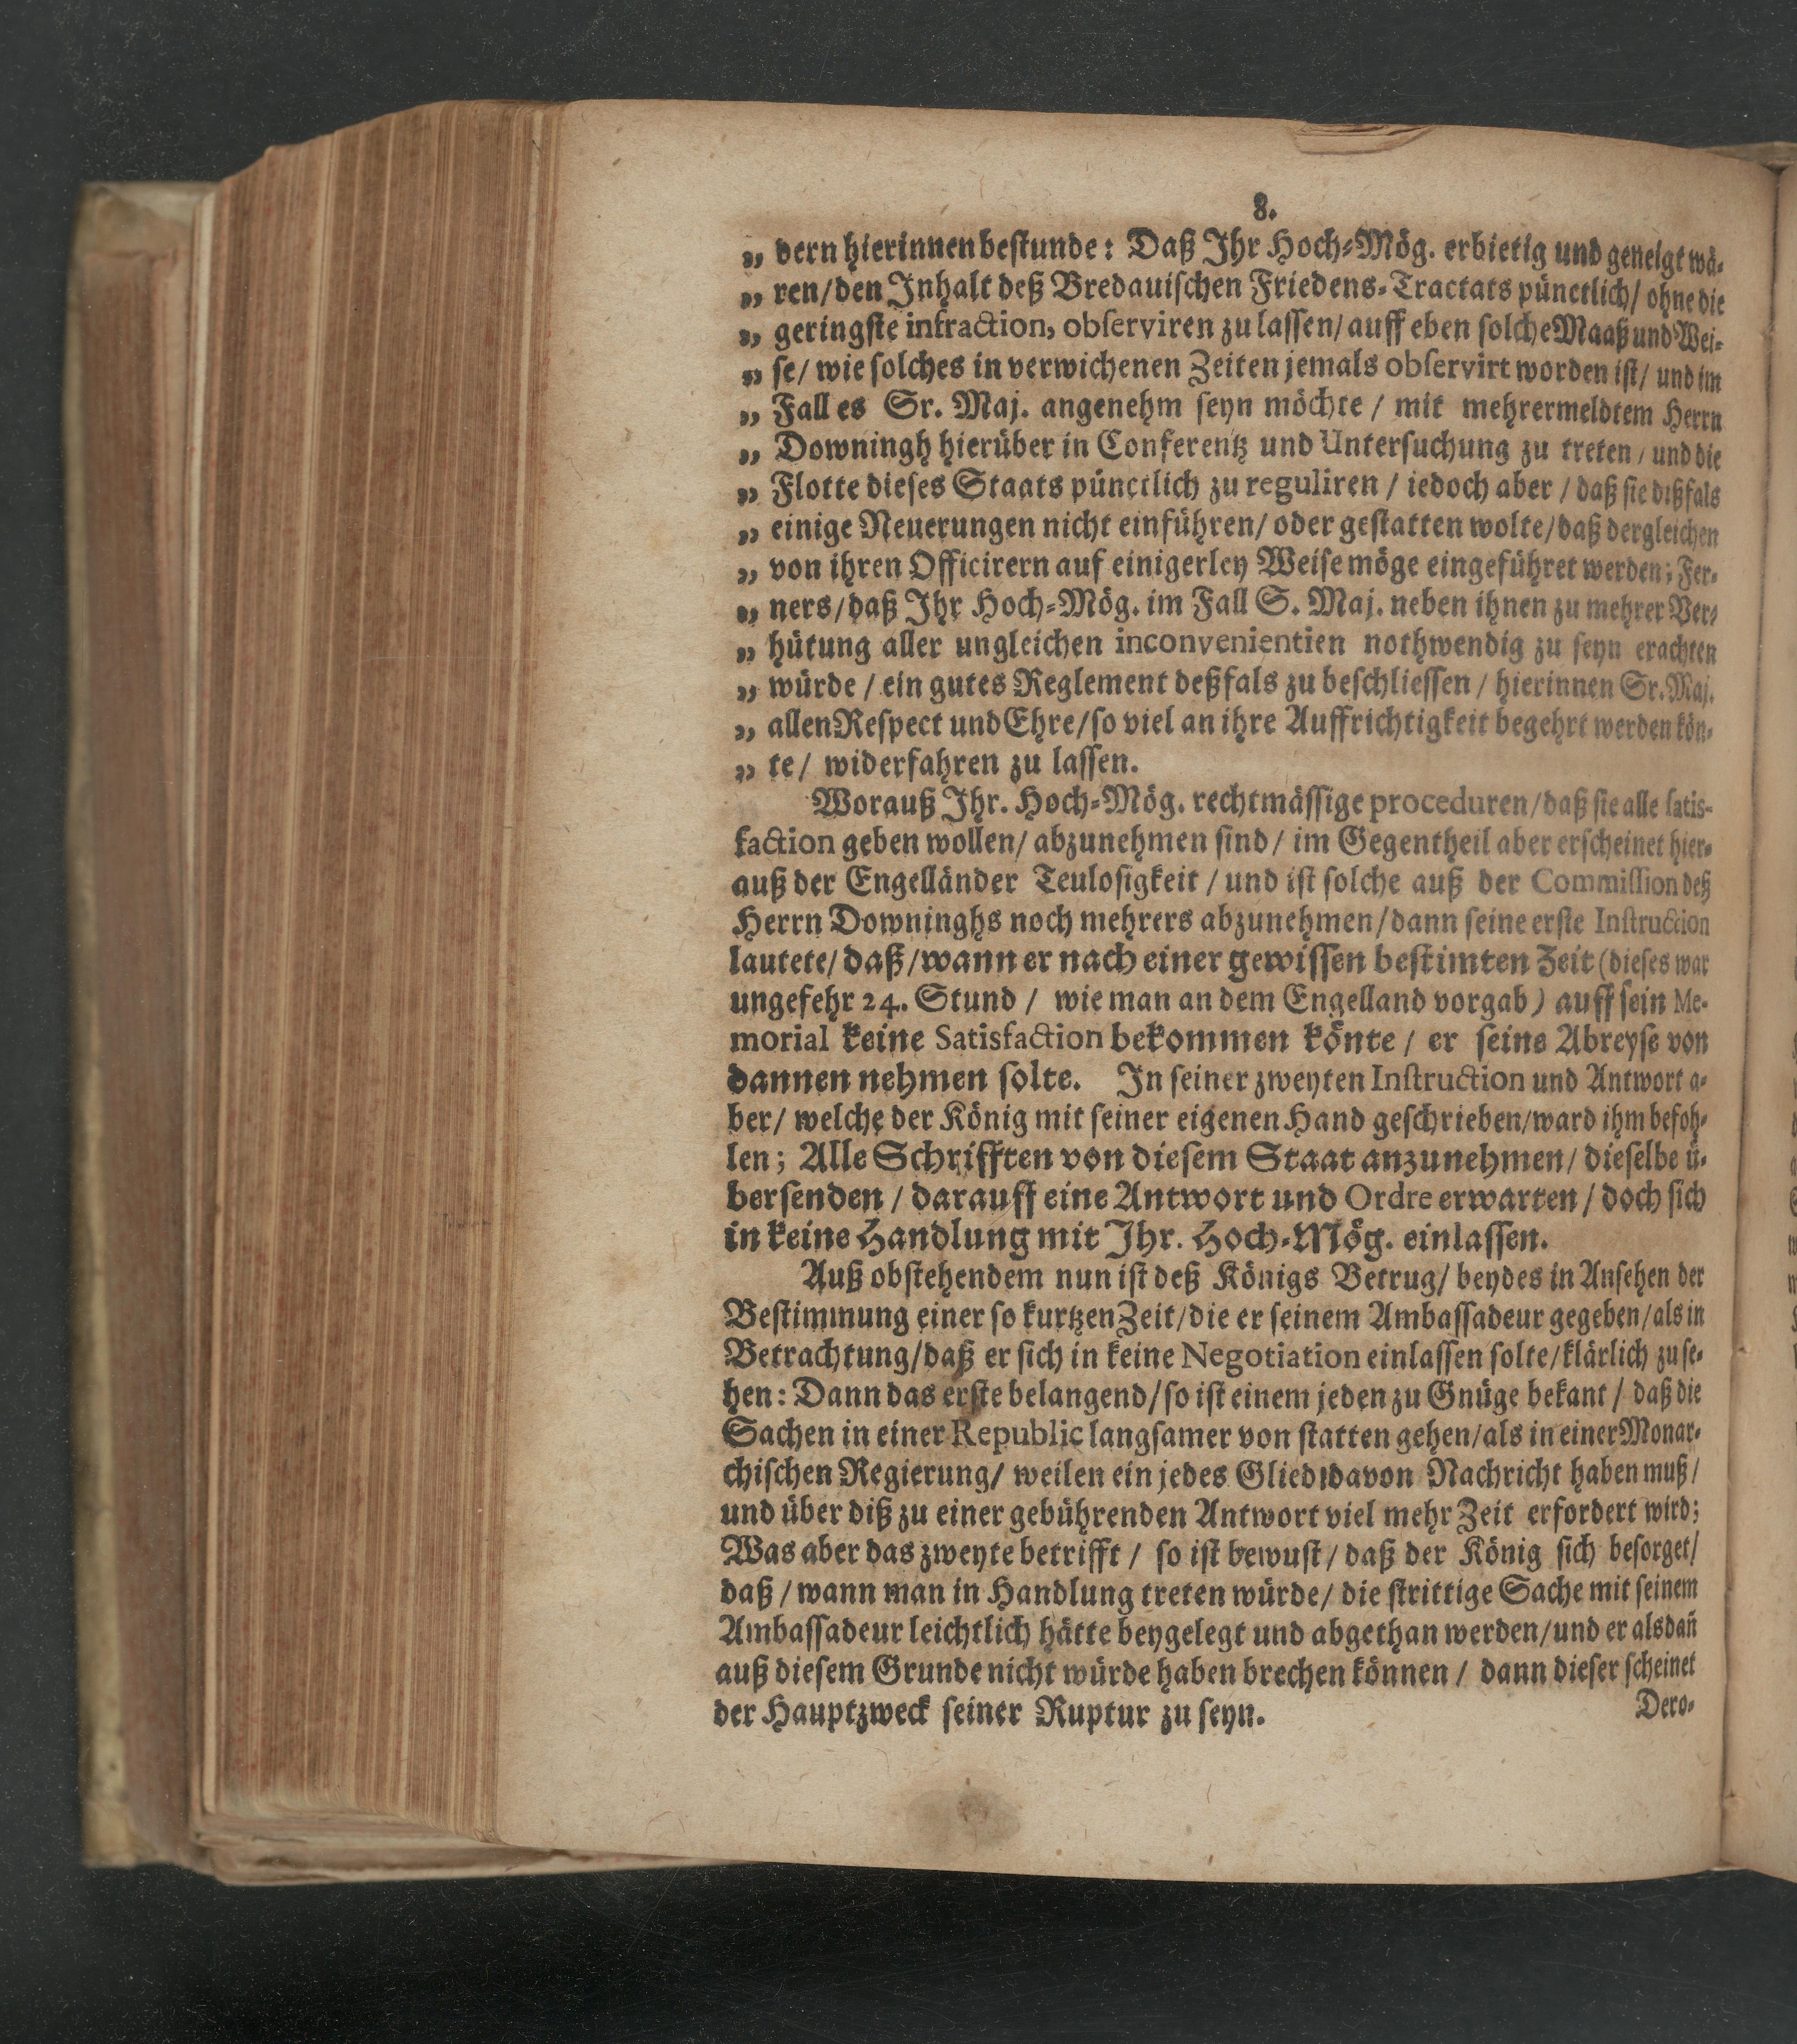 8.
„ dern hierinnen bestunde: Daß Ihr Hoch-Mög. erbietig und geneigt wä-
„ ren/ den Inhalt deß Bredauischen Friedens-Tractats pünctlich/ ohne die
„ geringste infraction, observiren zu lassen/ auff eben solche Maaß und Wei-
„ se/ wie solches in verwichenen Zeiten jemals observirt worden ist/ und im
„ Fall es Sr. Maj. angenehm seyn möchte / mit mehrermeldtem Herrn
„ Downingh hierüber in Conferentz und Untersuchung zu treten / und die
„ Flotte dieses Staats pünctlich zu reguliren / iedoch aber / daß sie dißfals
„ einige Neuerungen nicht einführen/ oder gestatten wolte/ daß dergleichen
„ von ihren Officirern auf einigerley Weise möge eingeführet werden; Fer-
„ ners/ daß Ihr Hoch-Mög. im Fall S. Maj. neben ihnen zu mehrer Ver-
„ hütung aller ungleichen inconvenientien nothwendig zu seyn erachten
„ würde / ein gutes Reglement deßfals zu beschliessen / hierinnen Sr. Maj.
„ allen Respect und Ehre/ so viel an ihre Auffrichtigkeit begehrt werden kön-
„ te/ widerfahren zu lassen.
Worauß Ihr. Hoch-Mög. rechtmässige proceduren/ daß sie alle satis-
faction geben wollen/ abzunehmen sind/ im Gegentheil aber erscheinet hier-
auß der Engelländer Teulosigkeit / und ist solche auß der Commission deß
Herrn Downinghs noch mehrers abzunehmen/ dann seine erste Instruction
lautete/ daß/ wann er nach einer gewissen bestimten Zeit (dieses war
ungefehr 24. Stund / wie man an dem Engelland vorgab) auff sein Me-
morial keine Satisfaction bekommen könte / er seine Abreyse von
dannen nehmen solte. In seiner zweyten Instruction und Antwort a-
ber/ welche der König mit seiner eigenen Hand geschrieben/ ward ihm befoh-
len; Alle Schrifften von diesem Staat anzunehmen/ dieselbe ü-
bersenden / darauff eine Antwort und Ordre erwarten / doch sich
in keine Handlung mit Ihr. Hoch-Mög. einlassen.
Auß obstehendem nun ist deß Königs Betrug/ beydes in Ansehen der
Bestimmung einer so kurtzen Zeit/ die er seinem Ambassadeur gegeben/ als in
Betrachtung/ daß er sich in keine Negotiation einlassen solte/ klärlich zu se-
hen: Dann das erste belangend/ so ist einem jeden zu Gnüge bekant / daß die
Sachen in einer Republic langsamer von statten gehen/ als in einer Monar-
chischen Regierung/ weilen ein jedes Glied davon Nachricht haben muß/
und über diß zu einer gebührenden Antwort viel mehr Zeit erfordert wird;
Was aber das zweyte betrifft / so ist bewust / daß der König sich besorget/
daß / wann man in Handlung treten würde/ die strittige Sache mit seinem
Ambassadeur leichtlich hätte beygelegt und abgethan werden/ und er alsdañ
auß diesem Grunde nicht würde haben brechen können / dann dieser scheinet
der Hauptzweck seiner Ruptur zu seyn.
Dero-